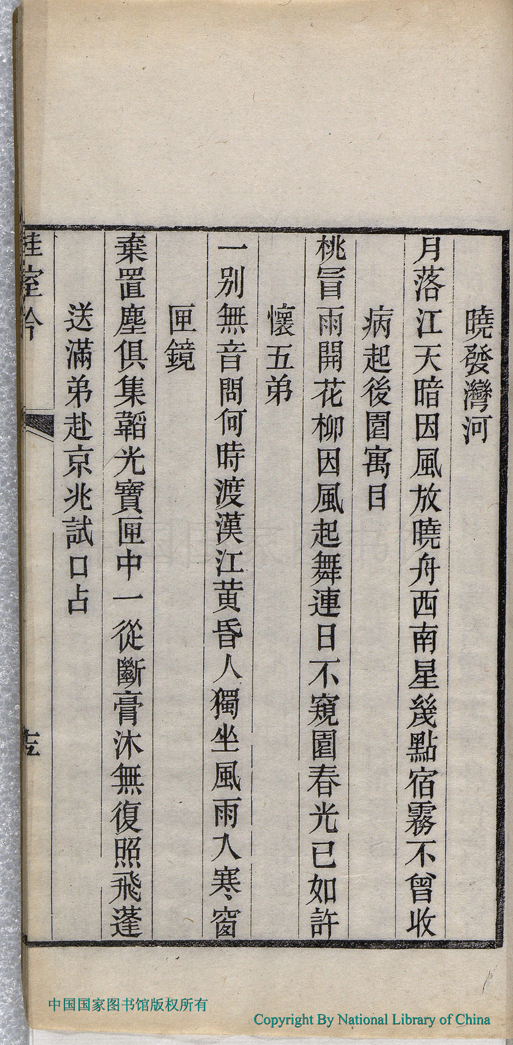 曉發灣河
月落江天暗因風放曉舟西南星幾點宿霧不曾收
病起後園寓目
桃冒雨開花柳因風起舞連日不窺園春光已如許
懷五弟
一別無音問何時渡漢江黃昏人獨坐風雨入寒窗
匣鏡
棄置塵俱集韜光寶匣中一從斷膏沐無復照飛蓬
送滿弟赴京兆試口占
室吟
中国国家图书馆版权所有
Copyright By National Library of China